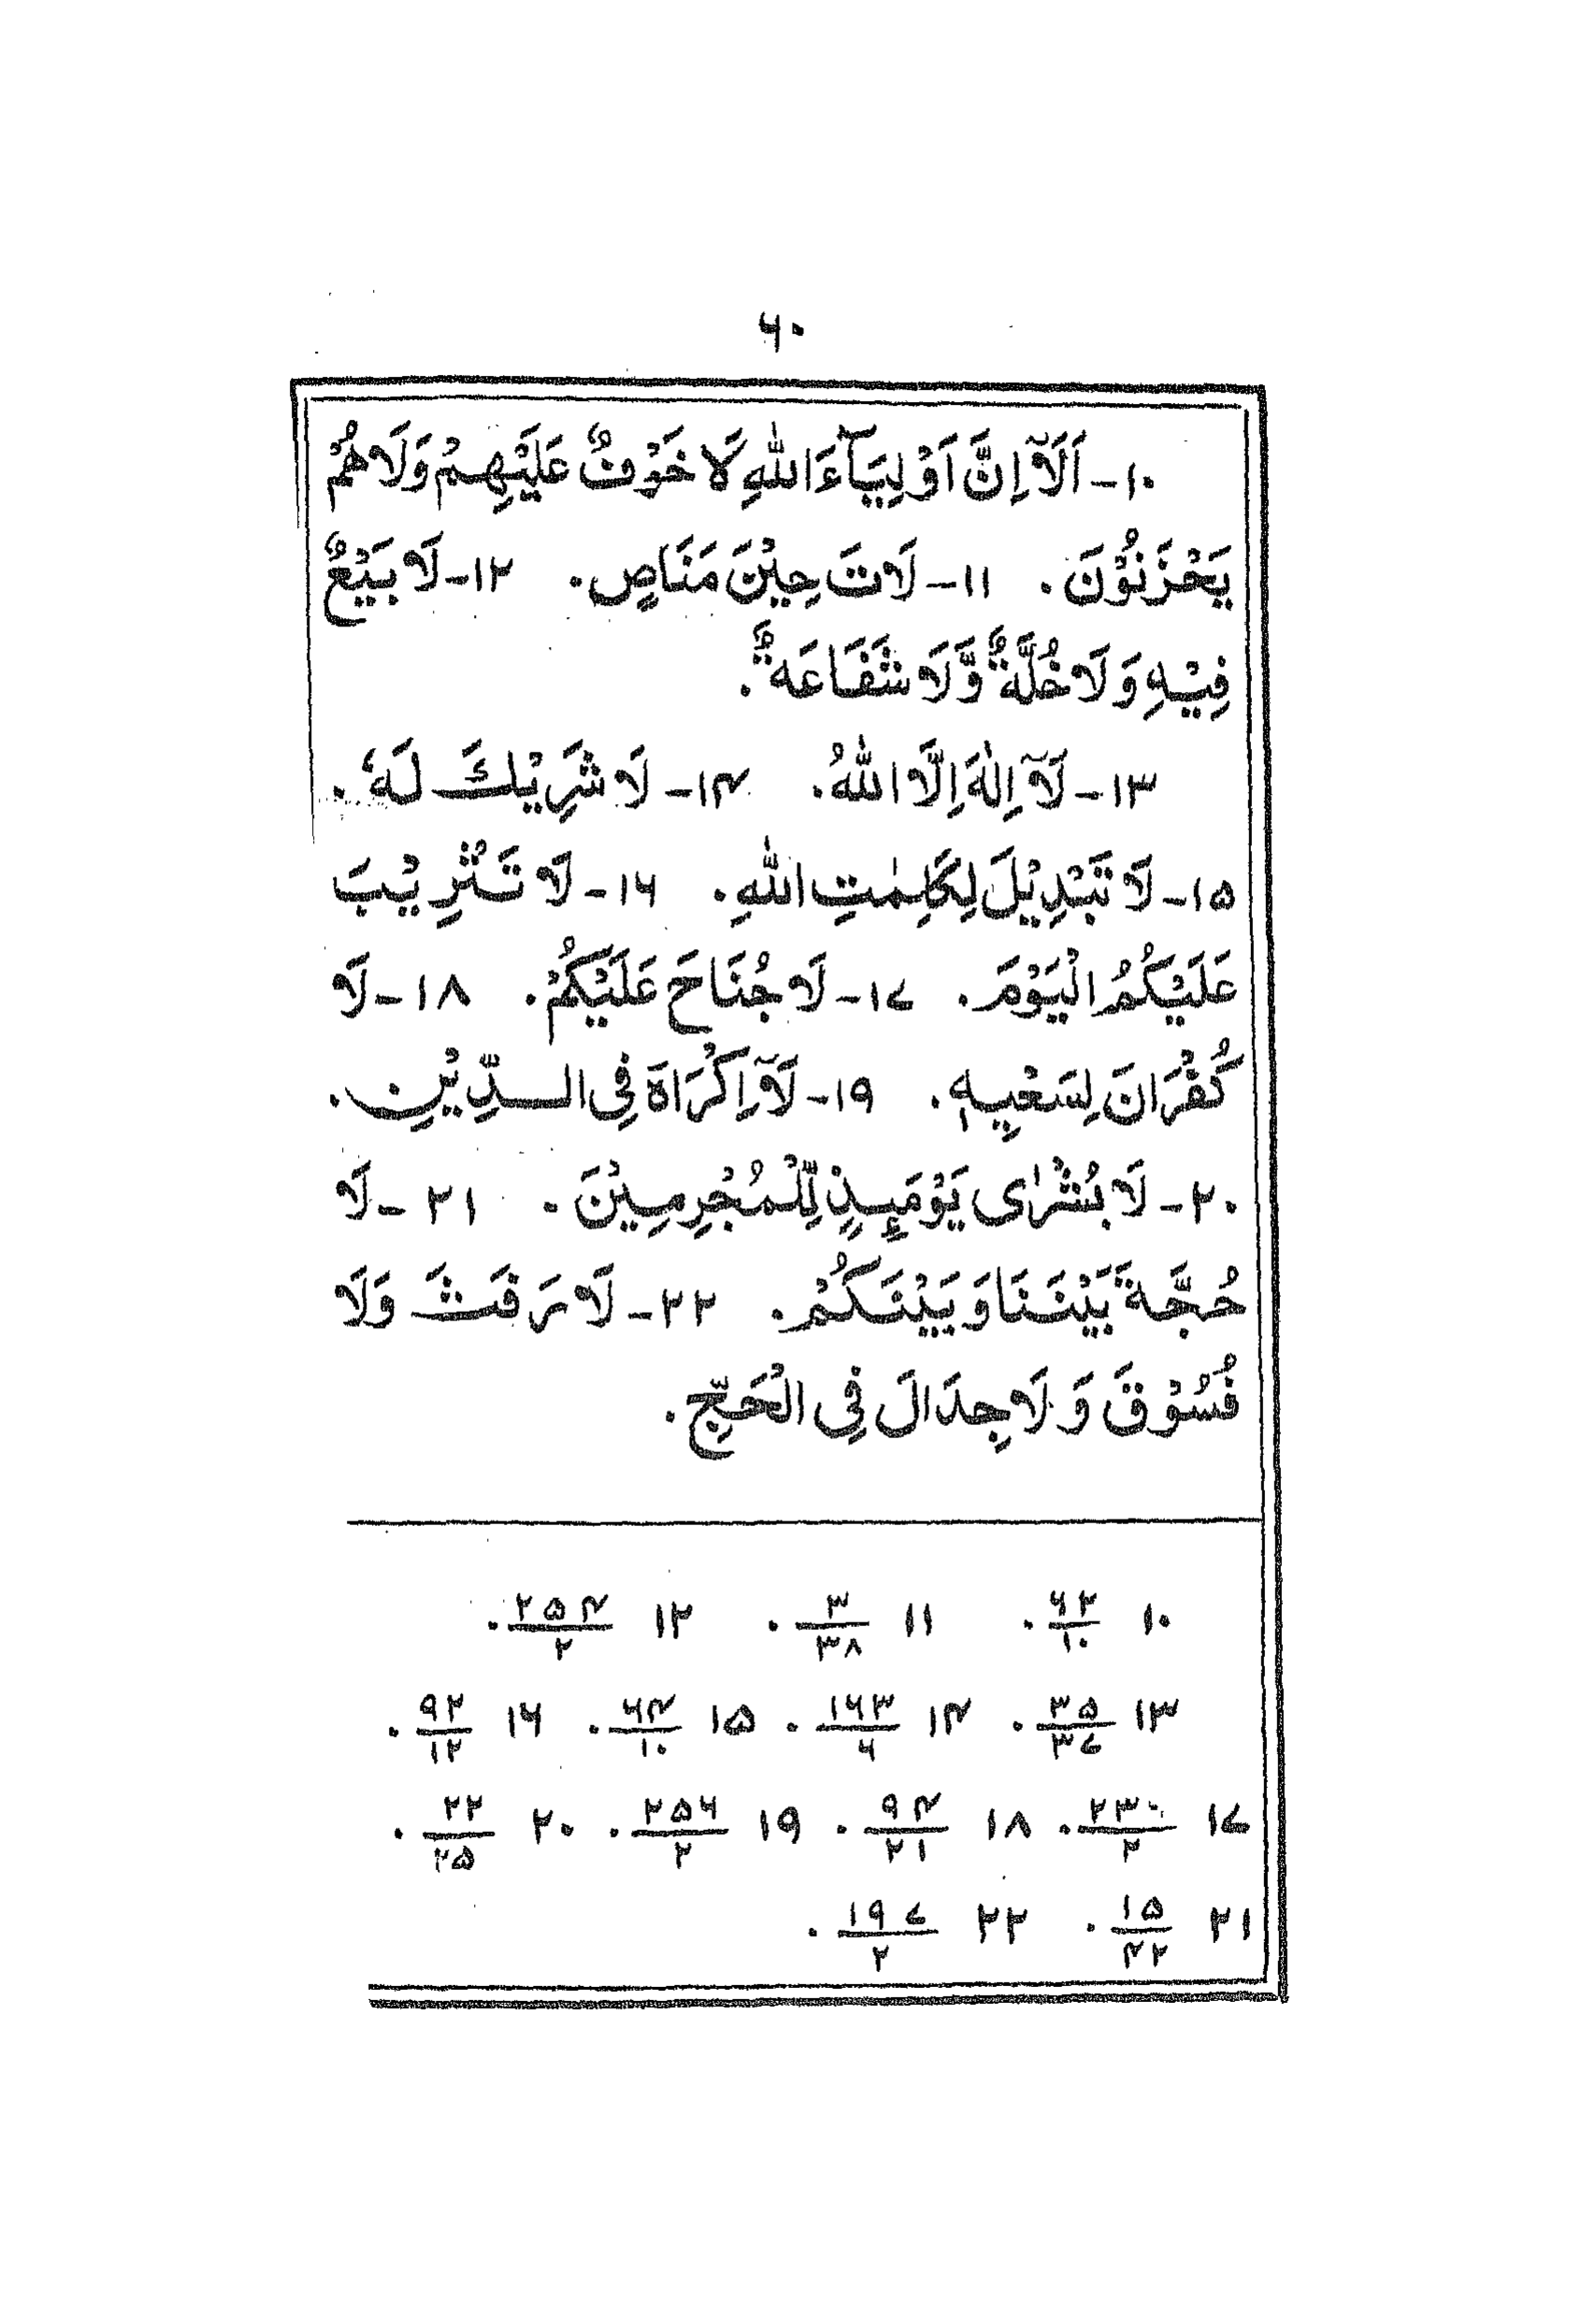 ۶۰
۱۰- اَلَآ اِنَّ اَوْلِيَآءَ اللّٰهِ لَا خَوْفٌ عَلَيْهِمْ وَلَا هُمْ
يَحْزَنُوْنَ. ۱۱- لَاتَ حِيْنَ مَنَاصٍ. ۱۲- لَا بَيْعٌ
فِيْهِ وَلَا خُلَّةٌ وَّلَا شَفَاعَةٌ.
۱۳- لَآ اِلٰهَ اِلَّا اللّٰهُ. ۱۴- لَا شَرِيْكَ لَهٗ.
۱۵- لَا تَبْدِيْلَ لِكَلِمٰتِ اللّٰهِ. ۱۶- لَا تَثْرِيْبَ
عَلَيْكُمُ الْيَوْمَ. ۱۷- لَا جُنَاحَ عَلَيْكُمْ. ۱۸- لَا
كُفْرَانَ لِسَعْيِهٖ. ۱۹- لَآ اِكْرَاهَ فِى الدِّيْنِ.
۲۰- لَا بُشْرٰى يَوْمَئِذٍ لِّلْمُجْرِمِيْنَ. ۲۱- لَا
حُجَّةَ بَيْنَنَا وَ بَيْنَكُمْ. ۲۲- لَا رَفَثَ وَلَا
فُسُوْقَ وَ لَا جِدَالَ فِى الْحَجِّ.
۱۰ ۶۲/۱۰. ۱۱ ۳/۳۸. ۱۲ ۲۵۴/۲.
۱۳ ۳۵/۳۷. ۱۴ ۱۶۳/۶. ۱۵ ۶۴/۱۰. ۱۶ ۹۲/۱۲.
۱۷ ۲۳۰/۲. ۱۸ ۹۴/۲۱. ۱۹ ۲۵۶/۲. ۲۰ ۲۲/۲۵.
۲۱ ۱۵/۴۲. ۲۲ ۱۹۷/۲.